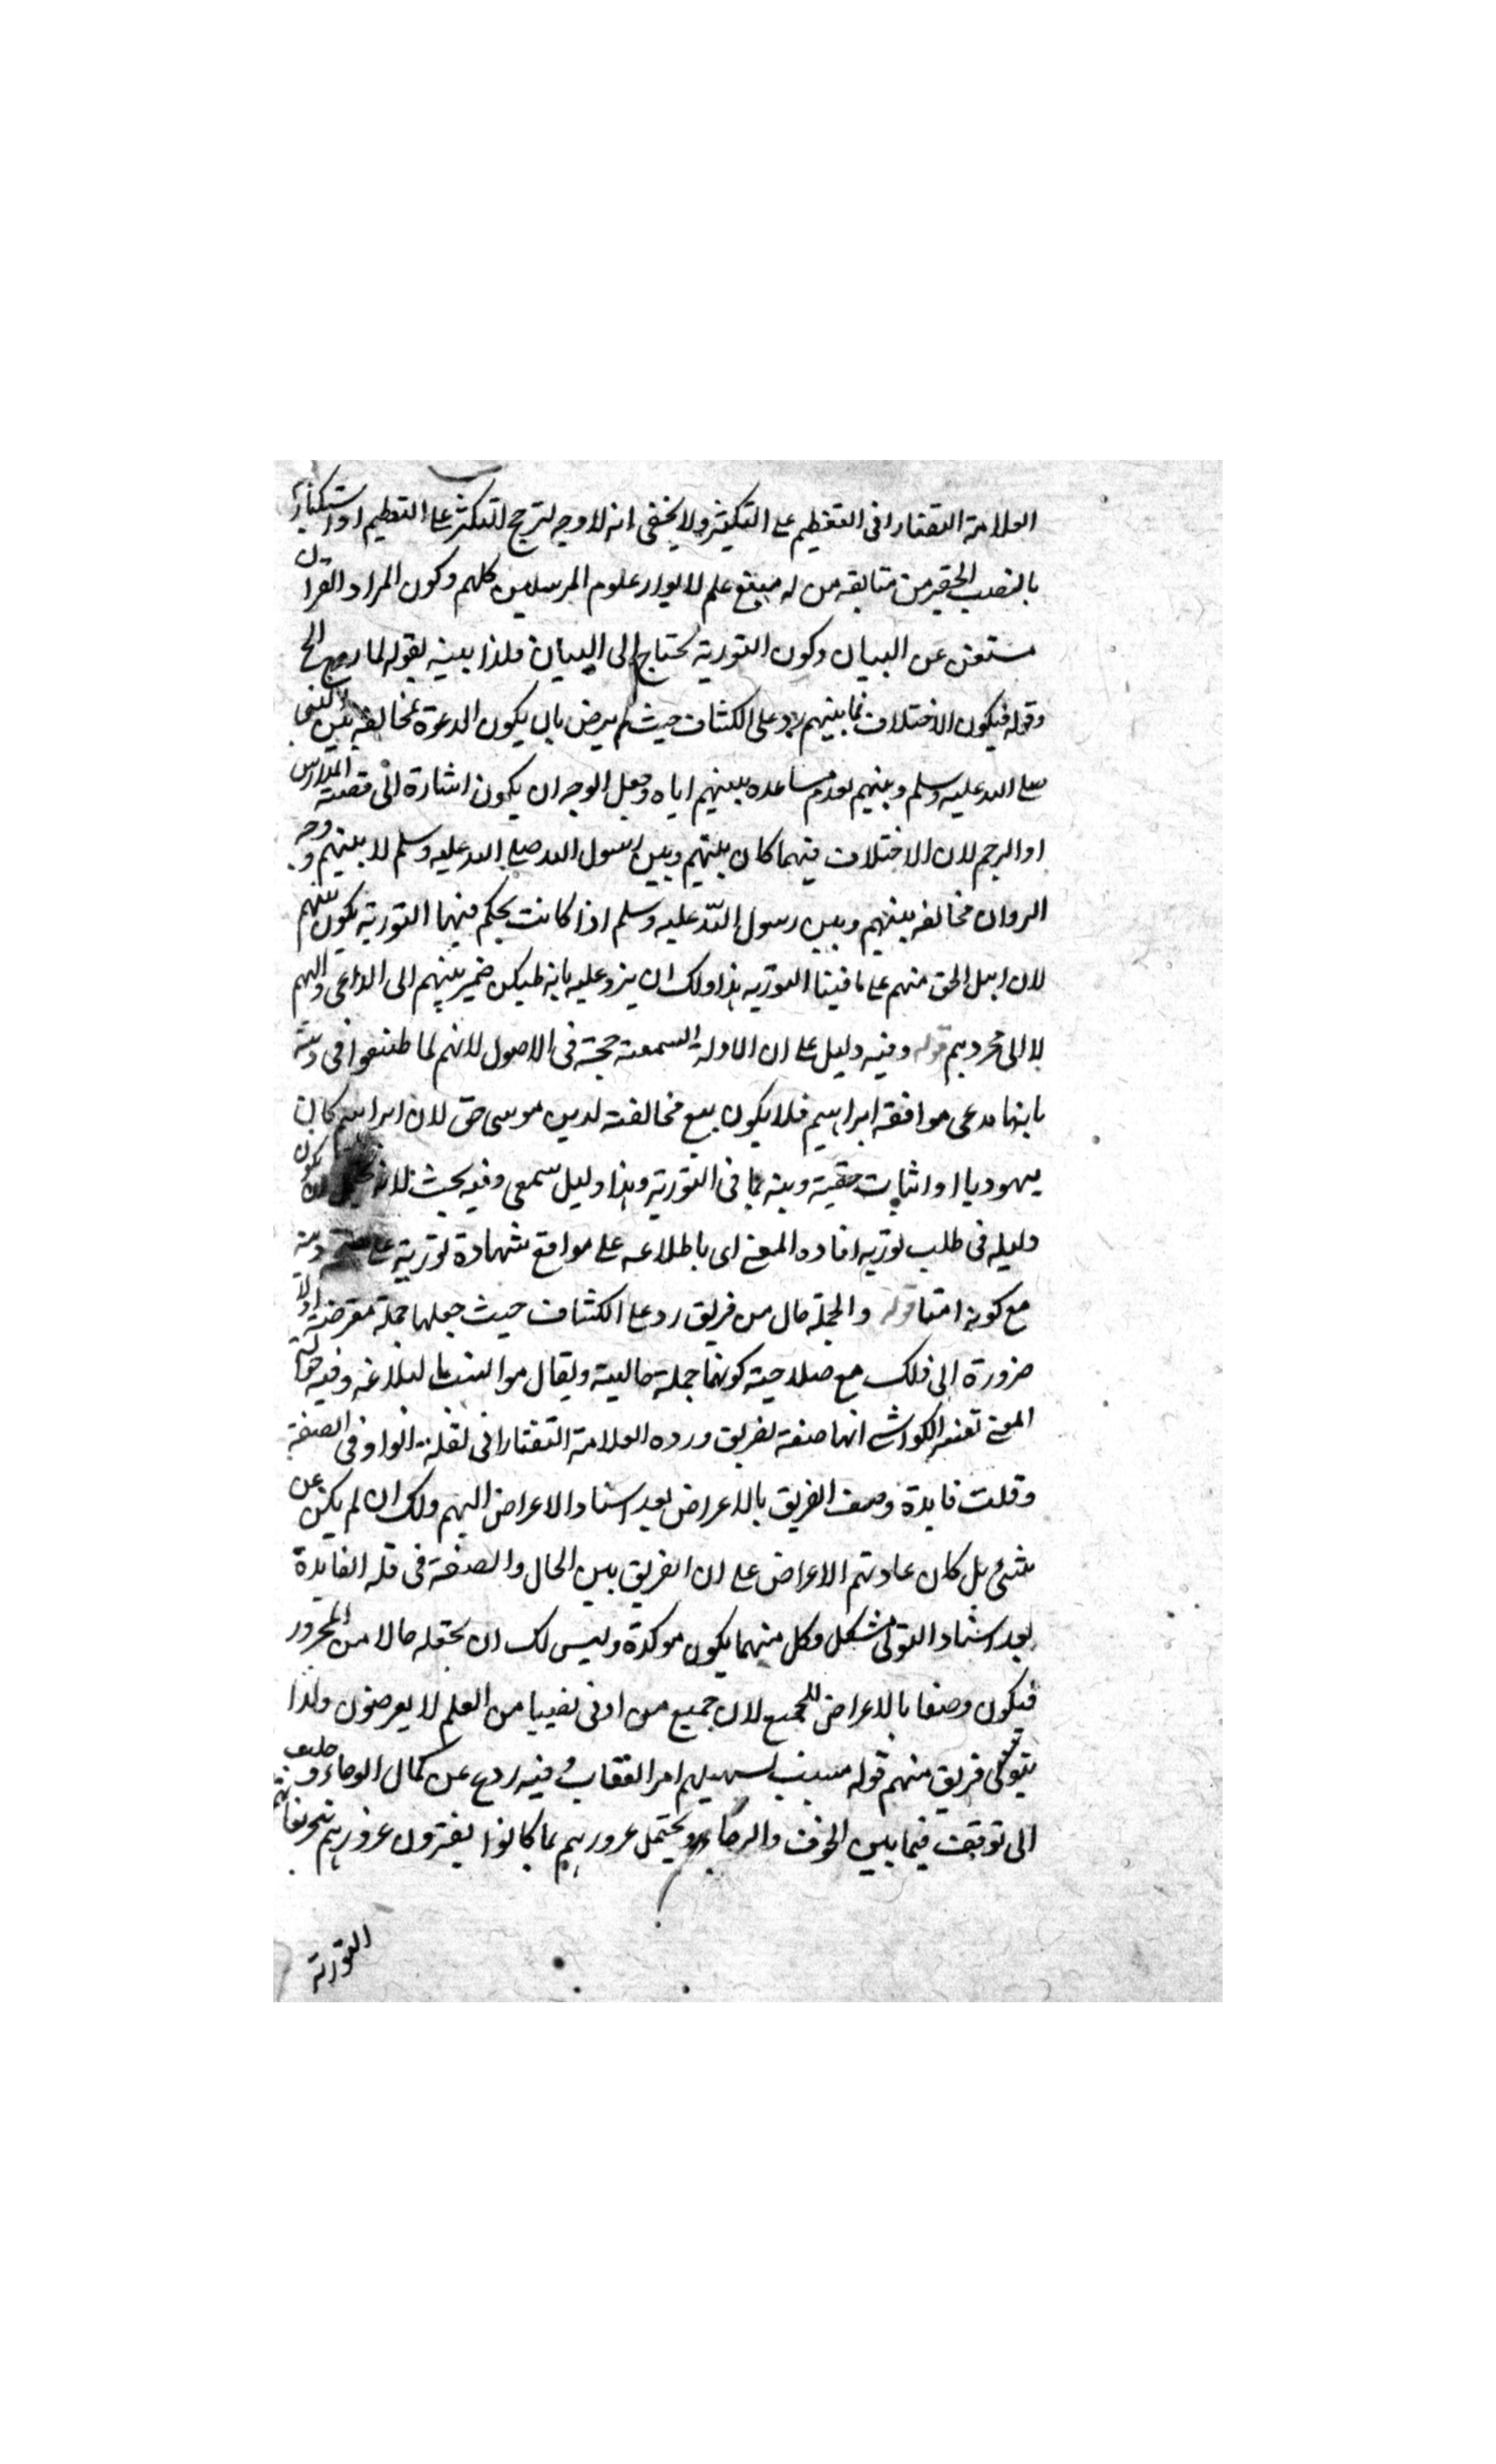 العلامة التفتازانى التعظيم على التكثير ولا يخفى انه لا وجه لترجيح التكثير على التعظيم او استكبار
بالنصب الحقير من متابعة من له منبع علم لا يوازر علوم المرسلين كلهم وكون المراد القرآن
مستغن عن البيان وكون التورية يحتاج الى البيان فلذا بينه بقوله لما روى الخ
وقوله فيكون الاختلاف فيما بينهم رد على الكشاف حيث لم يرض بان يكون الدعوة لمخالفة بين النبى
صلى الله عليه وسلم وبينهم لعدم مساعدة بينهم اياه وجعل الوجه ان يكون اشارة الى قصة المدارس
او الرجم لان الاختلاف فيهما كان بينهم وبين رسول الله صلى الله عليه وسلم لا بينهم ووجه
الرد ان مخالفه بينهم وبين رسول الله عليه وسلم اذا كانت يحكم فيها التورية يكون بينهم
لان اهل الحق منهم على ما فينا التورية هذا ولك ان يرد عليه بانه ليكن ضمير بينهم الى الداعى واليهم
لا الى مجردهم قوله وفيه دليل على ان الادلة السمعية حجة فى الاصول لانهم لما طعنوا فى دينه
بانها مدعى موافقة ابراهيم فلا يكون بيع مخالفته لدين موسى حق لان ابراهيم كان
يهوديا او اثبات حقية دينه بما فى التورية وهذا دليل سمعى وفيه بحث لانه يكون
دليله فى طلب تورية افاده المعنى اى باطلاعه على مواقع شهادة تورية على دينه
مع كونه اميا قوله والجملة حال من فريق رد على الكشاف حيث جعلها جملة معترضة اذ لا
ضرورة الى ذلك مع صلاحية كونها جملة حالية ويقال هو انسب بالبلاغة وفيه
المعنى تفسير الكواشى انها صفة لفريق ورده العلامة التفتازانى لقلة الواو فى الصفة
وقلت فايدة وصف الفريق بالاعراض بعد اسناد الاعراض اليهم ولك ان لم يكن عن
شئ بل كان عادتهم الاعراض على ان الفريق بين الحال والصفة فى قلة الفايدة
بعد اسناد التولى مشكل وكل منهما يكون موكدة وليس لك ان تجعله حالا من المجرور
فيكون وصفا بالاعراض للجميع لان جميع من اوتى نصيبا من العلم لا يعرضون ولذا
يتولى فريق منهم قوله بسبب تسهيلهم امر العقاب وفيه ردع عن كمال الرجاء
الى توقيف فيما بين الخوف والرجاء ويحتمل غرورهم بما كانوا يفترون غرورهم بتحريفاتهم
التورية